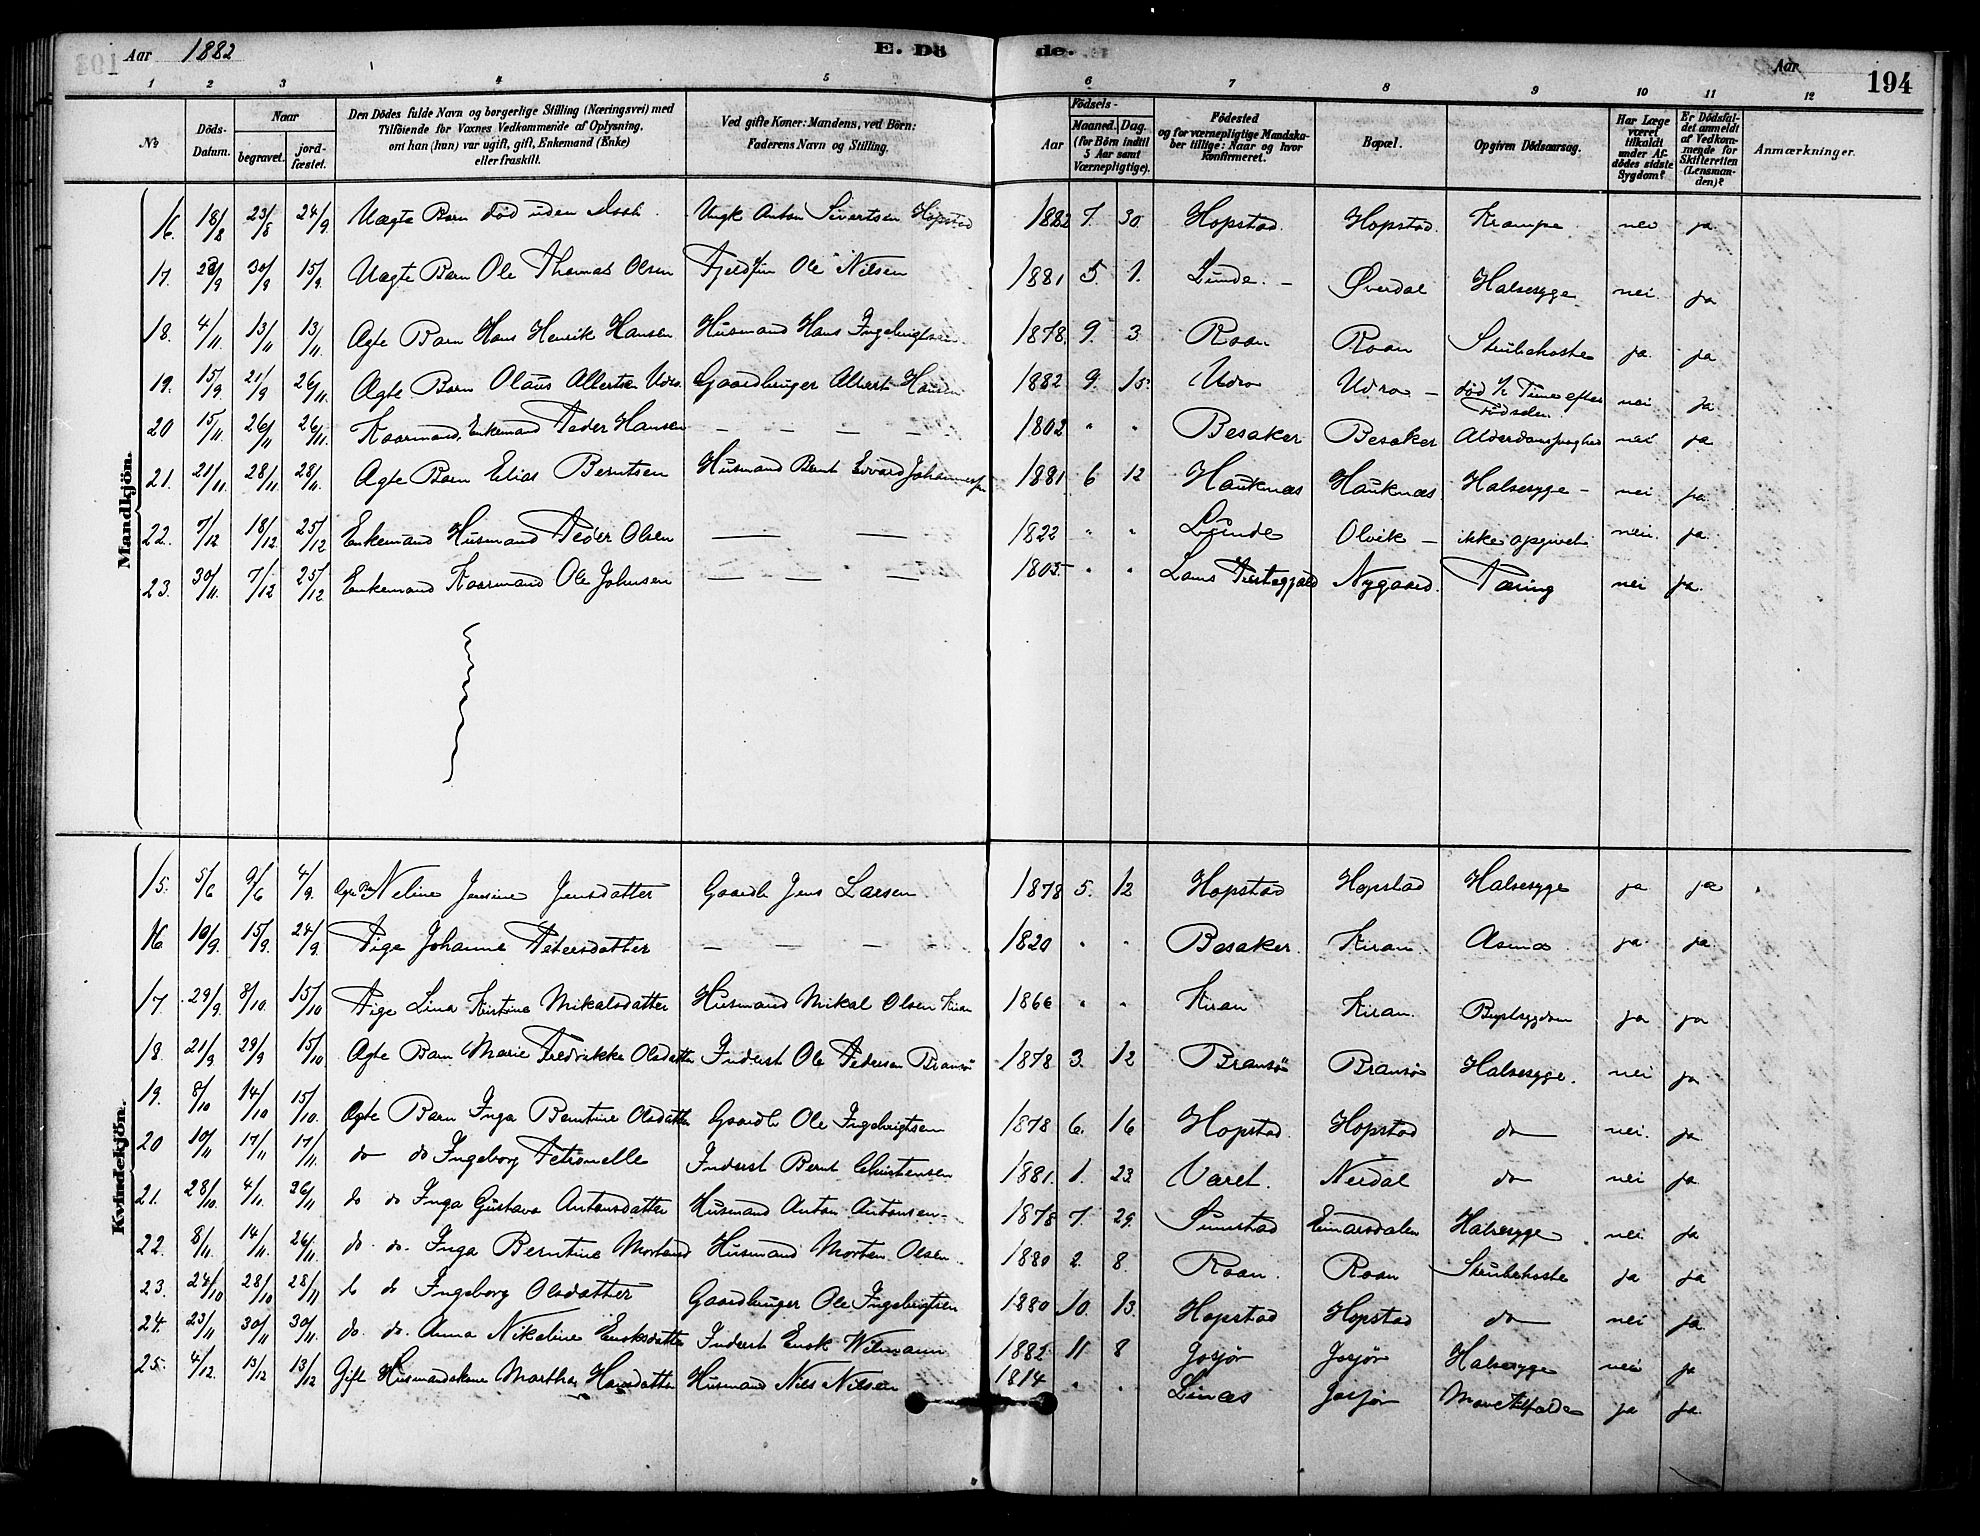 Aar 1882 E. Dö de. Aar 194
1 2 3 4 5 6 7 8 9 10 11 12
No Döds-Datum. Naar begravet. jord-fæstet. Den Dödes fulde Navn og borgerlige Stilling (Næringsvei) med Tilföiende for Voxnes Vedkommende af Oplysning, om han (hun) var ugift, gift, Enkemand (Enke) eller fraskilt. Ved gifte Koner: Mandens, ved Börn: Faderens Navn og Stilling. Födsels- Aar Maaned. Dag. (for Börn indtil 5 Aar samt Værnepligtige). Födested og for værnepligtige Mandskaber tillige: Naar og hvor konfirmeret. Bopæl. Opgiven Dödsaarsag. Har Læge været tilkaldt under Afdödes sidste Sygdom? Er Dödsfaldet anmeldt af Vedkommende for Skifteretten (Lensmanden)? Anmærkninger.
Mandkjön.
16. 18/8 23/8 24/9 Uægte Barn død uden Daab. Ungk Anton Sivertsen Hopstad 1882 7. 30. Hopstad. Hopstad. Krampe. nei ja
17. 30/9 15/9. Uægte Barn Ole Thomas Olsen Ole Nilsen 1881 5. 1. Lunde. – Øverdal Halsesyge nei. ja
18. 4/11. 13/11 13/11. Ægte Barn Hans Henrik Hansen Husmand Hans 1878. 9. 3. Roan Roan Strubehoste ja. ja
19. 15/9. 21/9 26/11. Ægte Barn Olaus Albertsen Udro. Gaardbruger Albert Hansen 1882 9. 15. Udro Udro – død ½ Time efter Fødselen nei ja
20 15/11. 26/11 26/11. Kaarmand, Enkemand Peder Hansen – – – – 1802 " " Besaker Besaker Alderdomssvaghed nei ja
21. 21/11. 28/11. 28/11. Ægte Barn Elias Berntsen Husmand Bernt Edvard 1881 6 12 Hauknæs Hauknæs Halsesyge – nei ja.
22. 7/12 18/12. 25/12 Enkemand Husmand Peder Olsen — — 1822 " " Lunde Olvik – ikke opgivet nei. ja.
23. 30/11. 7/12 25/12 Enkemand Kaarmand Ole Johnsen — — — — 1805. " " Nygaard. Tæring nei ja.
Kvindekjön.
15. 5/6 9/6 4/9. Ægte Barn Neline Jensine Jensdatter Gaardb Jens Larsen 1878 5. 12 Hopstad Hopstad Halsesyge ja ja
16 10/9. 15/9. 24/9. Pige Johanna Petersdatter – – – – 1820 " " Besaker. Kiran. Asma ja ja
17. 29/9. 8/10. 15/10 Pige Lina Kirstine Mikalsdatter Husmand Mikal Olsen Kiran 1866 " " Kiran Kiran. Brystsygdom ja ja
18. 21/9 29/9 15/10. Ægte Barn Marie Fredrikke Olsdatter Inderst Ole Pedersen Bransø 1878 3. 12 Bransø Bransø Halsesyge. nei ja
19. 8/10 14/10 15/10. Ægte Barn Inga Berntine Olsdatter Gaardb Ole Ingebrigtsen 1878 6. 16 Hopstad. Hopstad do nei. ja
20 10/11 17/11 17/11. do do Ingeborg Petronelle Inderst Bernt Christensen 1881. 1. 23. Varet. Nerdal do nei ja
21. 28/10. 4/11. 26/11 do do Inga Gustava Antonsdatter Husmand Anton Antonsen. 1878 7. 29. Sumstad Einarsdalen Halsesyge nei ja
22. 8/11. 14/11. 26/11. do. do. Inga Berntine Mortensd Husmand Morten Olsen. 1880 2. 8. Roan. Roan Strubehoste ja ja
23. 24/10 28/10 28/11 do do Ingeborg Olsdatter Gaardbruger Ole Ingebrigtsen 1880 10. 13. Hopstad Hopstad do nei ja.
24. 23/11 30/11 30/11. do. do. Anna Nikoline Enoksdatter Inderst Enok Wilmann 1882 11 8 Josjør Josjør Halsesyge nei ja
25. 4/12. 13/12 13/12 Gift Husmandskone Martha Hansdatter Husmand Nils Nilsen 1814 " " Linæs Josjør ja ja.